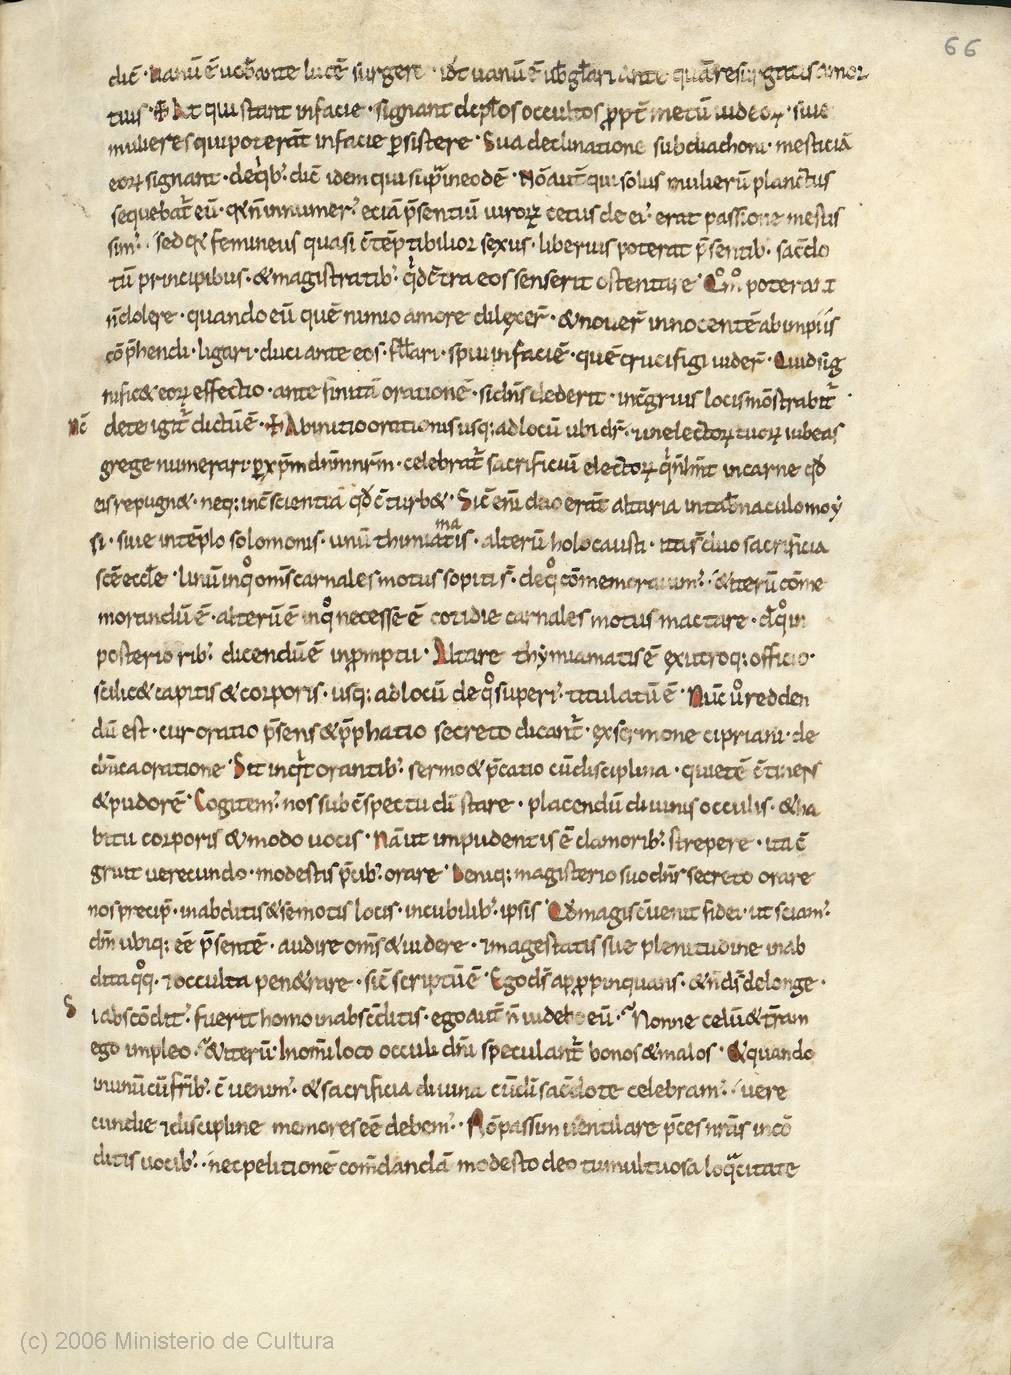 66
dic̄ · Uanū ē uob̄ ante lucē surgere · id̄t uanū ē ub̄ gl̄ari ante quā resurgatis a mor
tuis · At qui stant in facie · signant discip̄los occultos p̄pt̄ metū iudeoꝝ · siue
mulieres qui poterāt in facie ꝑsistere · Sua declinatione subdiachoni · mesticiā
eoꝝ signant · de qib; dic̄ idem qui sup̄ in eodē · Nō aut̄ qui solus mulierū planctus
sequebat̄ eū · innumer᷒ eciā p̄sentiū uiroꝝ cetus de ei᷒ erat passione mestus
sim᷒ · sed femineus quasi c̄tēptibilior sexus · liberius poterat p̄sentib; sac̄do
tū principibus · & magistratib; qd̄ c̄tra eos senserit ostentare · Qm̊ poterant
n̄ dolere · quando eū quē nimio amore dilexer̄ · & nouer̄ innocentē ab impiis
cōp̄hendi · ligari · duci ante eos · fl̄lari · spui in faciē · quē crucifigi uider̄ · Quid sig
nific& eoꝝ effectio · ante finitā orationē · si dn̄s dederit · in c̄gruis locis mōstrabit̄
Nc̄ de te igit̄ dictū ē · Ab initio orationis usq; ad locū ubi dr̄ · in electoꝝ tuoꝝ iubeas
grege numerari · ꝑ xp̄m dn̄m nr̄m · celebrat̄ sacrificiū electoꝝ qi n̄ hn̄t in carne qd̄
eis repugn& · neq; in c̄scientia qd̄ c̄turb& · Sic̄ eni᷒ duo erāt altaria in tab̄naculo moy
si · siue in tēplo solomonis · unū thimiamatis · alterū holocausti · ita s̄ duo sacrificia
sc̄e eccl̄e · Unū in qo om̄s carnales motus sopiti s̄ · de qo cōmemorauim᷒ · & iterū cōme
morandū ē · alterū ē in qo necesse ē cotidie carnales motus mactare · d̄ qo in
posteriorib; dicendū ē in p̄mptu · Altare thymiamatis ē ex utroq; officio ·
scilic& capitis & corporis · usq; ad locū de qo superi᷒ titulatū ē · Nūc uo redden
dū est · cur oratio p̄sens & p̄phatio secreto dicant̄ · ex sermone cipriani · de
dn̄ica oratione · Sit inqt̄ orantib; sermo & p̄catio cū disciplina · quietē c̄tinens
& pudorē · Cogitem᷒ nos sub c̄spectu di᷒ stare · placendū diuinis occulis · & ha
bitu corporis & modo uocis · Nā ut impudentis ē clamorib; strepere · ita c̄
gruit uerecundo · modestis p̄cib; orare · Deniq; magisterio suo dn̄s secreto orare
nos precip̄ · in abditis & semotis locis · in cubilib; ipsis · Qd̄ magis c̄uenit fidei · ut sciam᷒
dn̄m ubiq; eē p̄sentē · audire om̄s & uidere · & magestatis sue plenitudine in ab
dita qoq · & occulta pen&rare · sic̄ scriptū ē · Ego ds̄ ap̄ppinquans · & n̄ ds̄ de longe ·
S
i abscōdit᷒ fuerit homo in absc̄ditis · ego aut̄ n̄ uidebo eū · Nonne celū & t̄ram
ego impleo · & iterū · In om̄i loco occuli dn̄i speculant̄ bonos & malos · & quando
in unū cū fr̄ib; c̄uenim᷒ · & sacrificia diuina cū di᷒ sac̄dote celebram᷒ · uere
cundie & discipline memores eē debem᷒ · Nō passim uentilare p̄ces nr̄as incō
ditis uocib; · nec petitionē com̄dandā modesto deo tumultuosa loq̄citate
(c) 2006 Ministerio de Cultura